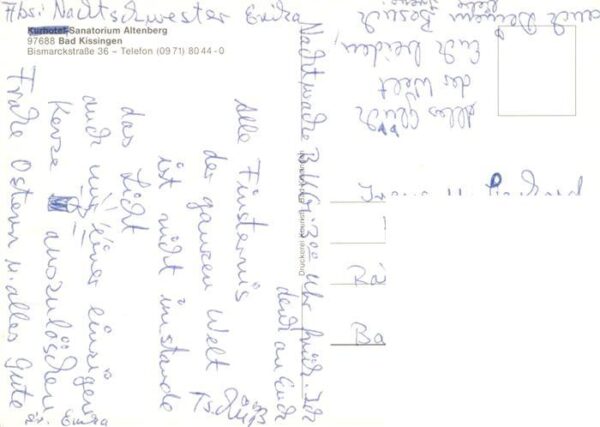 Abs: Nachtschwester Erika
Kurhotel-Sanatorium Altenberg
97688 Bad Kissingen
Bismarckstraße 36 – Telefon (09 71) 80 44 - 0
Nachtwache 3.00 Uhr früh. Ich
denk an Euch
Tschüß
Alle Finsternis
der ganzen Welt
ist nicht imstande
das Licht
auch nur einer einzigen
Kerze auszulöschen
Frohe Ostern u. alles Gute
Sr. Erika
alles Glück
der Welt
Euch beiden,
auch Deinem Besuch
Druckerei
Rä
Ba